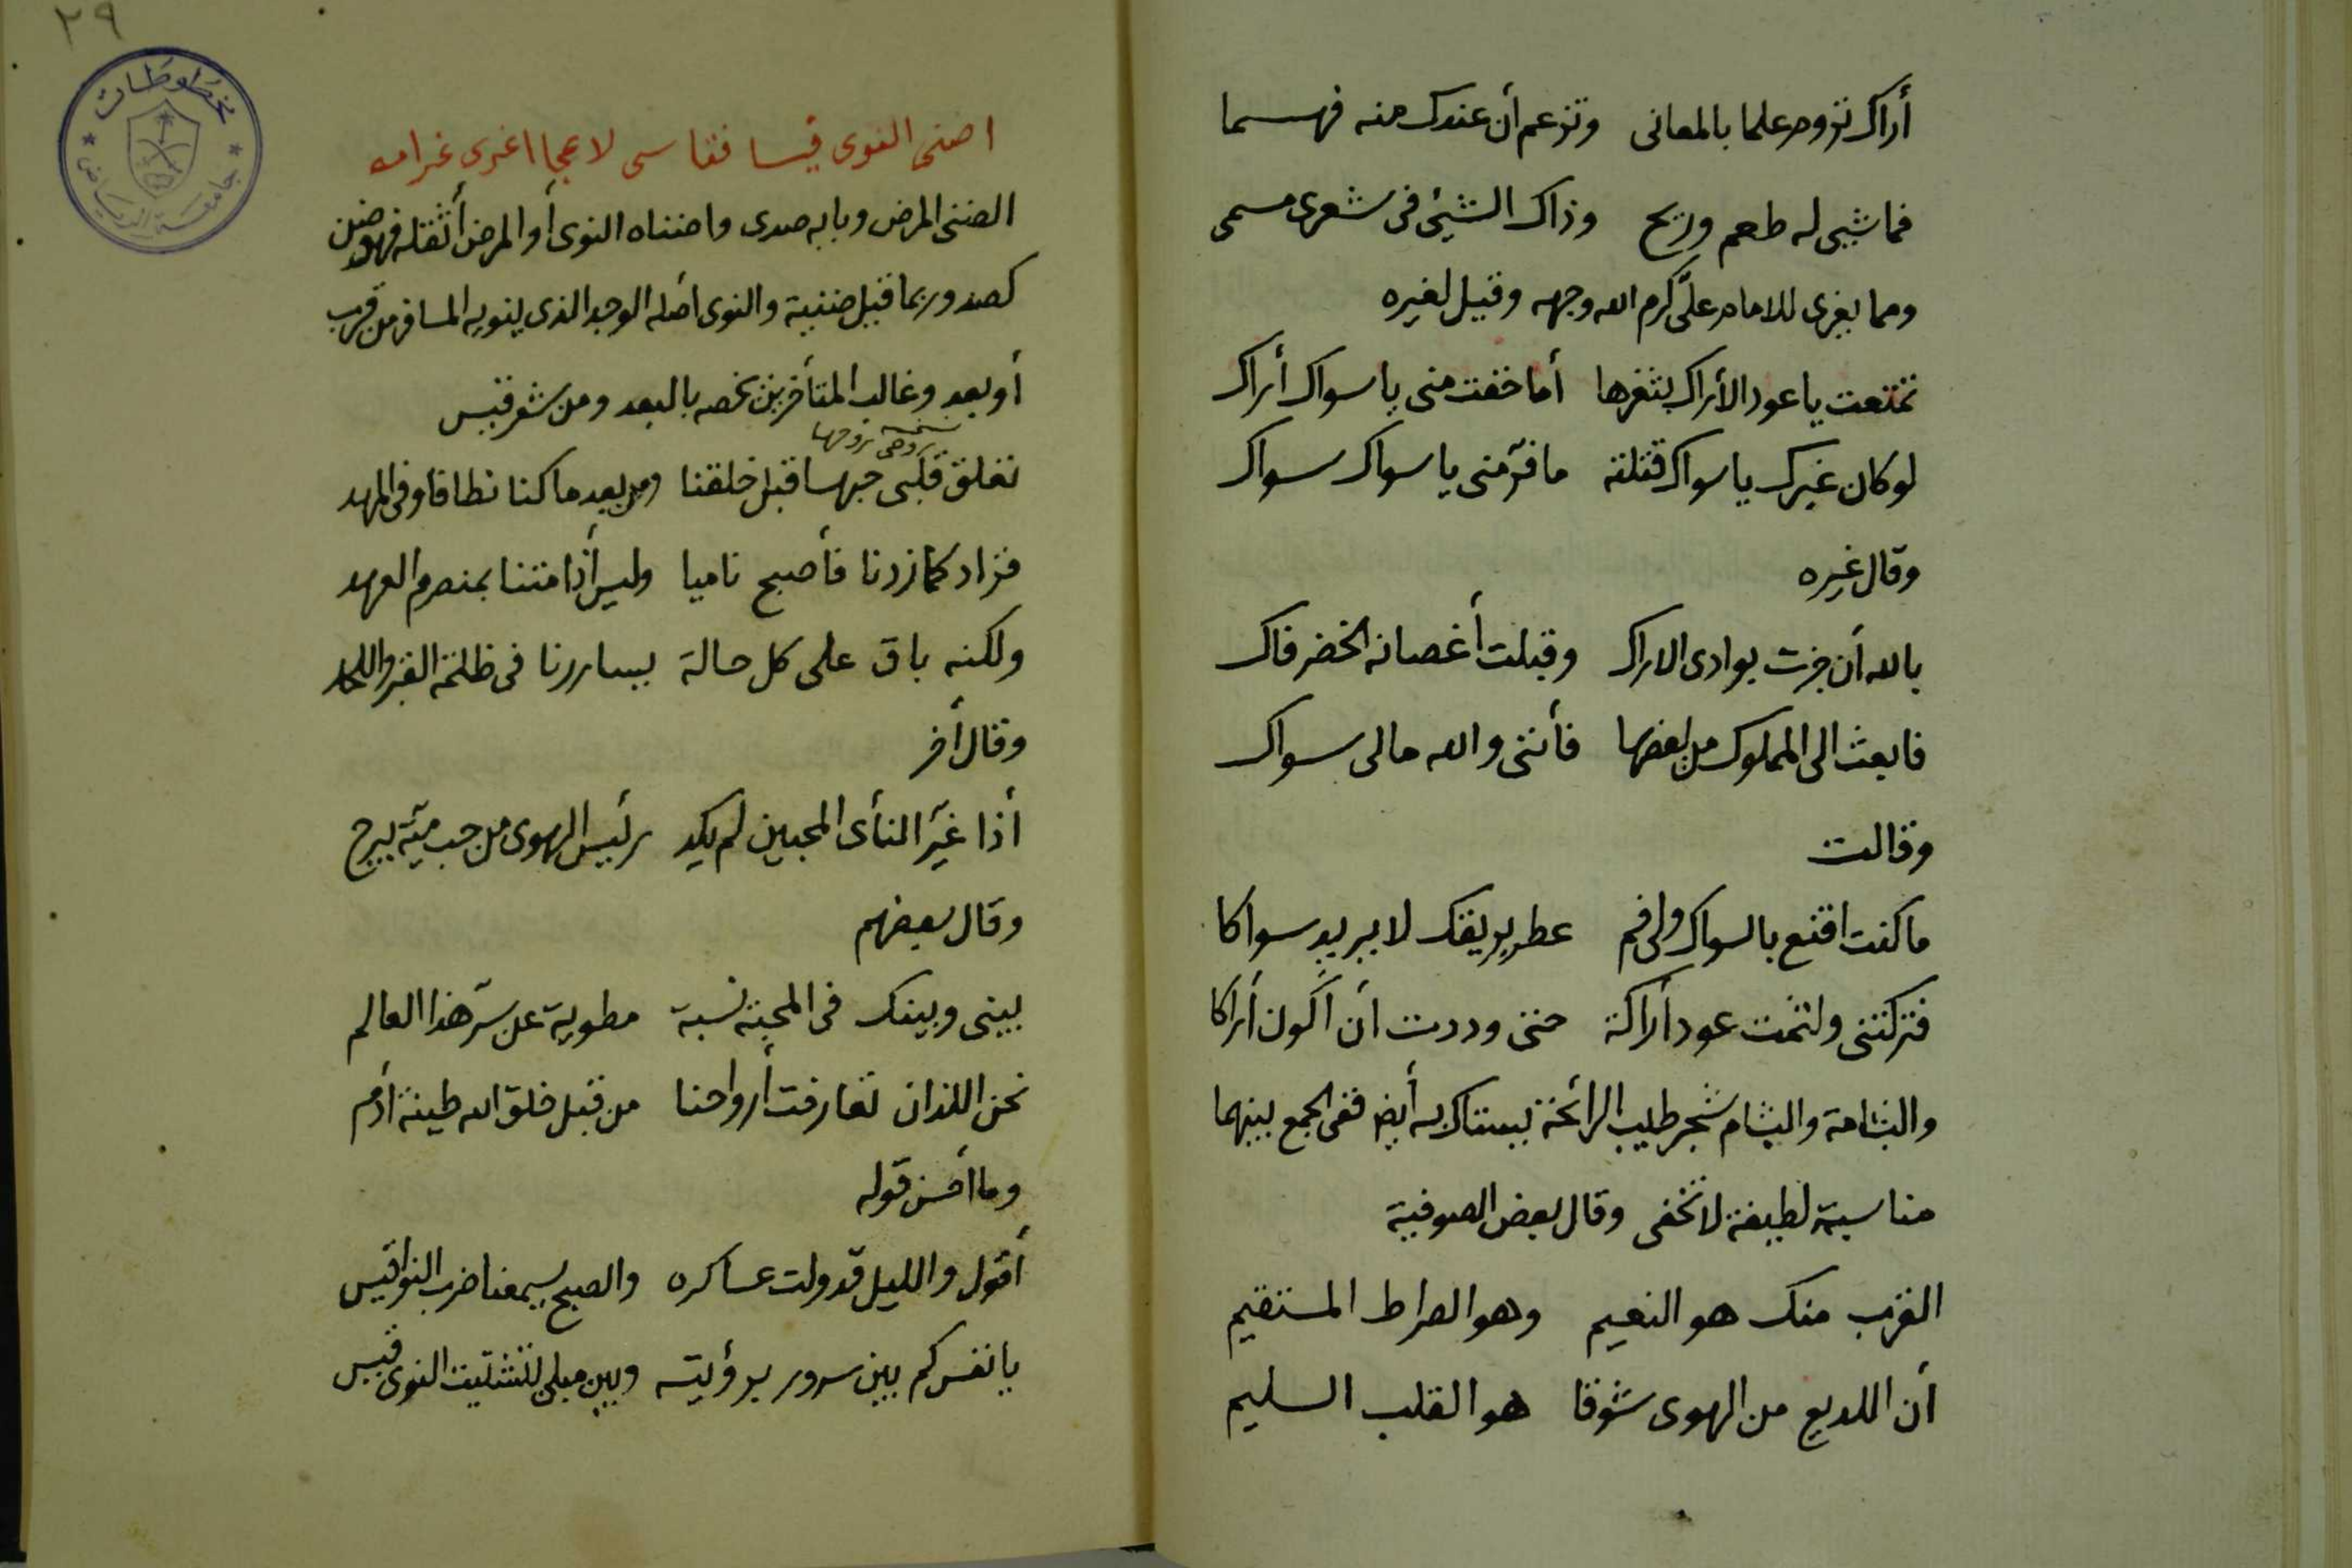 أراك تروم علما بالمعانى وتزعم أن عندك منه فهما
فما شيئ له طعم وريح وذاك الشيئ فى شعرى مسمى
ومما يعزى للامام علىّ كرم الله وجهه وقيل لغيره
تمتعت يا عود الأراك بثغرها أما خفت منى يا سواك أراك
لو كان غيرك يا سواك قتلته ما فرّ منى يا سواك سواك
وقال غيره
بالله أن جزت بوادى الاراك وقبلت أغصانه الخضر فاك
فابعث الى المملوك من بعضها فأننى والله مالى سواك
وقالت
ما كنت اقنع بالسواك ولى فم عطر بريقك لا يريد سواكا
فتركتنى ولثمت عود أراكة حتى وددت أن أكون أراكا
والبشامة والبشام شجر طيب الرائحة يستاك به أيض ففى الجمع بينهما
مناسبة لطيفة لا تخفى وقال بعض الصوفية
القرب منك هو النعيم وهو الصراط المستقيم
أن اللديغ من الهوى شوقا هو القلب السليم
٢٩
مخطوطات
جامعة الرياض
اضنى النوى قيسا فقاسى لاعجا اغرى غرامه
الضنى المرض وبابه صدى واضناه النوى أو المرض أثقله فهو ضنىن
كصد وربما قيل ضنية والنوى أصله الوجه الذى ينويه المسافر من قرب
أو بعد وغالب المتأخرين يخصه بالبعد ومن شعر قيس
نسخة
روحى روحها
تعلق قلبى حبها قبل خلقنا ومن بعد ما كنا نطافا وفى المهد
فزاد كما زدنا فأصبح ناميا وليس أذا متنا بمنصرم العهد
ولكنه باق على كل حالة يساررنا فى ظلمة القبر واللحد
وقال أخر
أذا غيّر النأى المحبين لم يكد رئيس الهوى من حب ميّة يبرح
وقال بعضهم
بينى وبينك فى المحبة نسبة مطوية عن سرّ هذا العالم
نحن اللذان تعارفت أرواحنا من قبل خلق الله طينة أدم
وما أحسن قوله
أقول والليل قد ولت عساكره والصبح يسمعنا ضرب النواقيس
يا نفس كم بين سرور برؤيته وبين مبلى لتشتيت النوى قيس